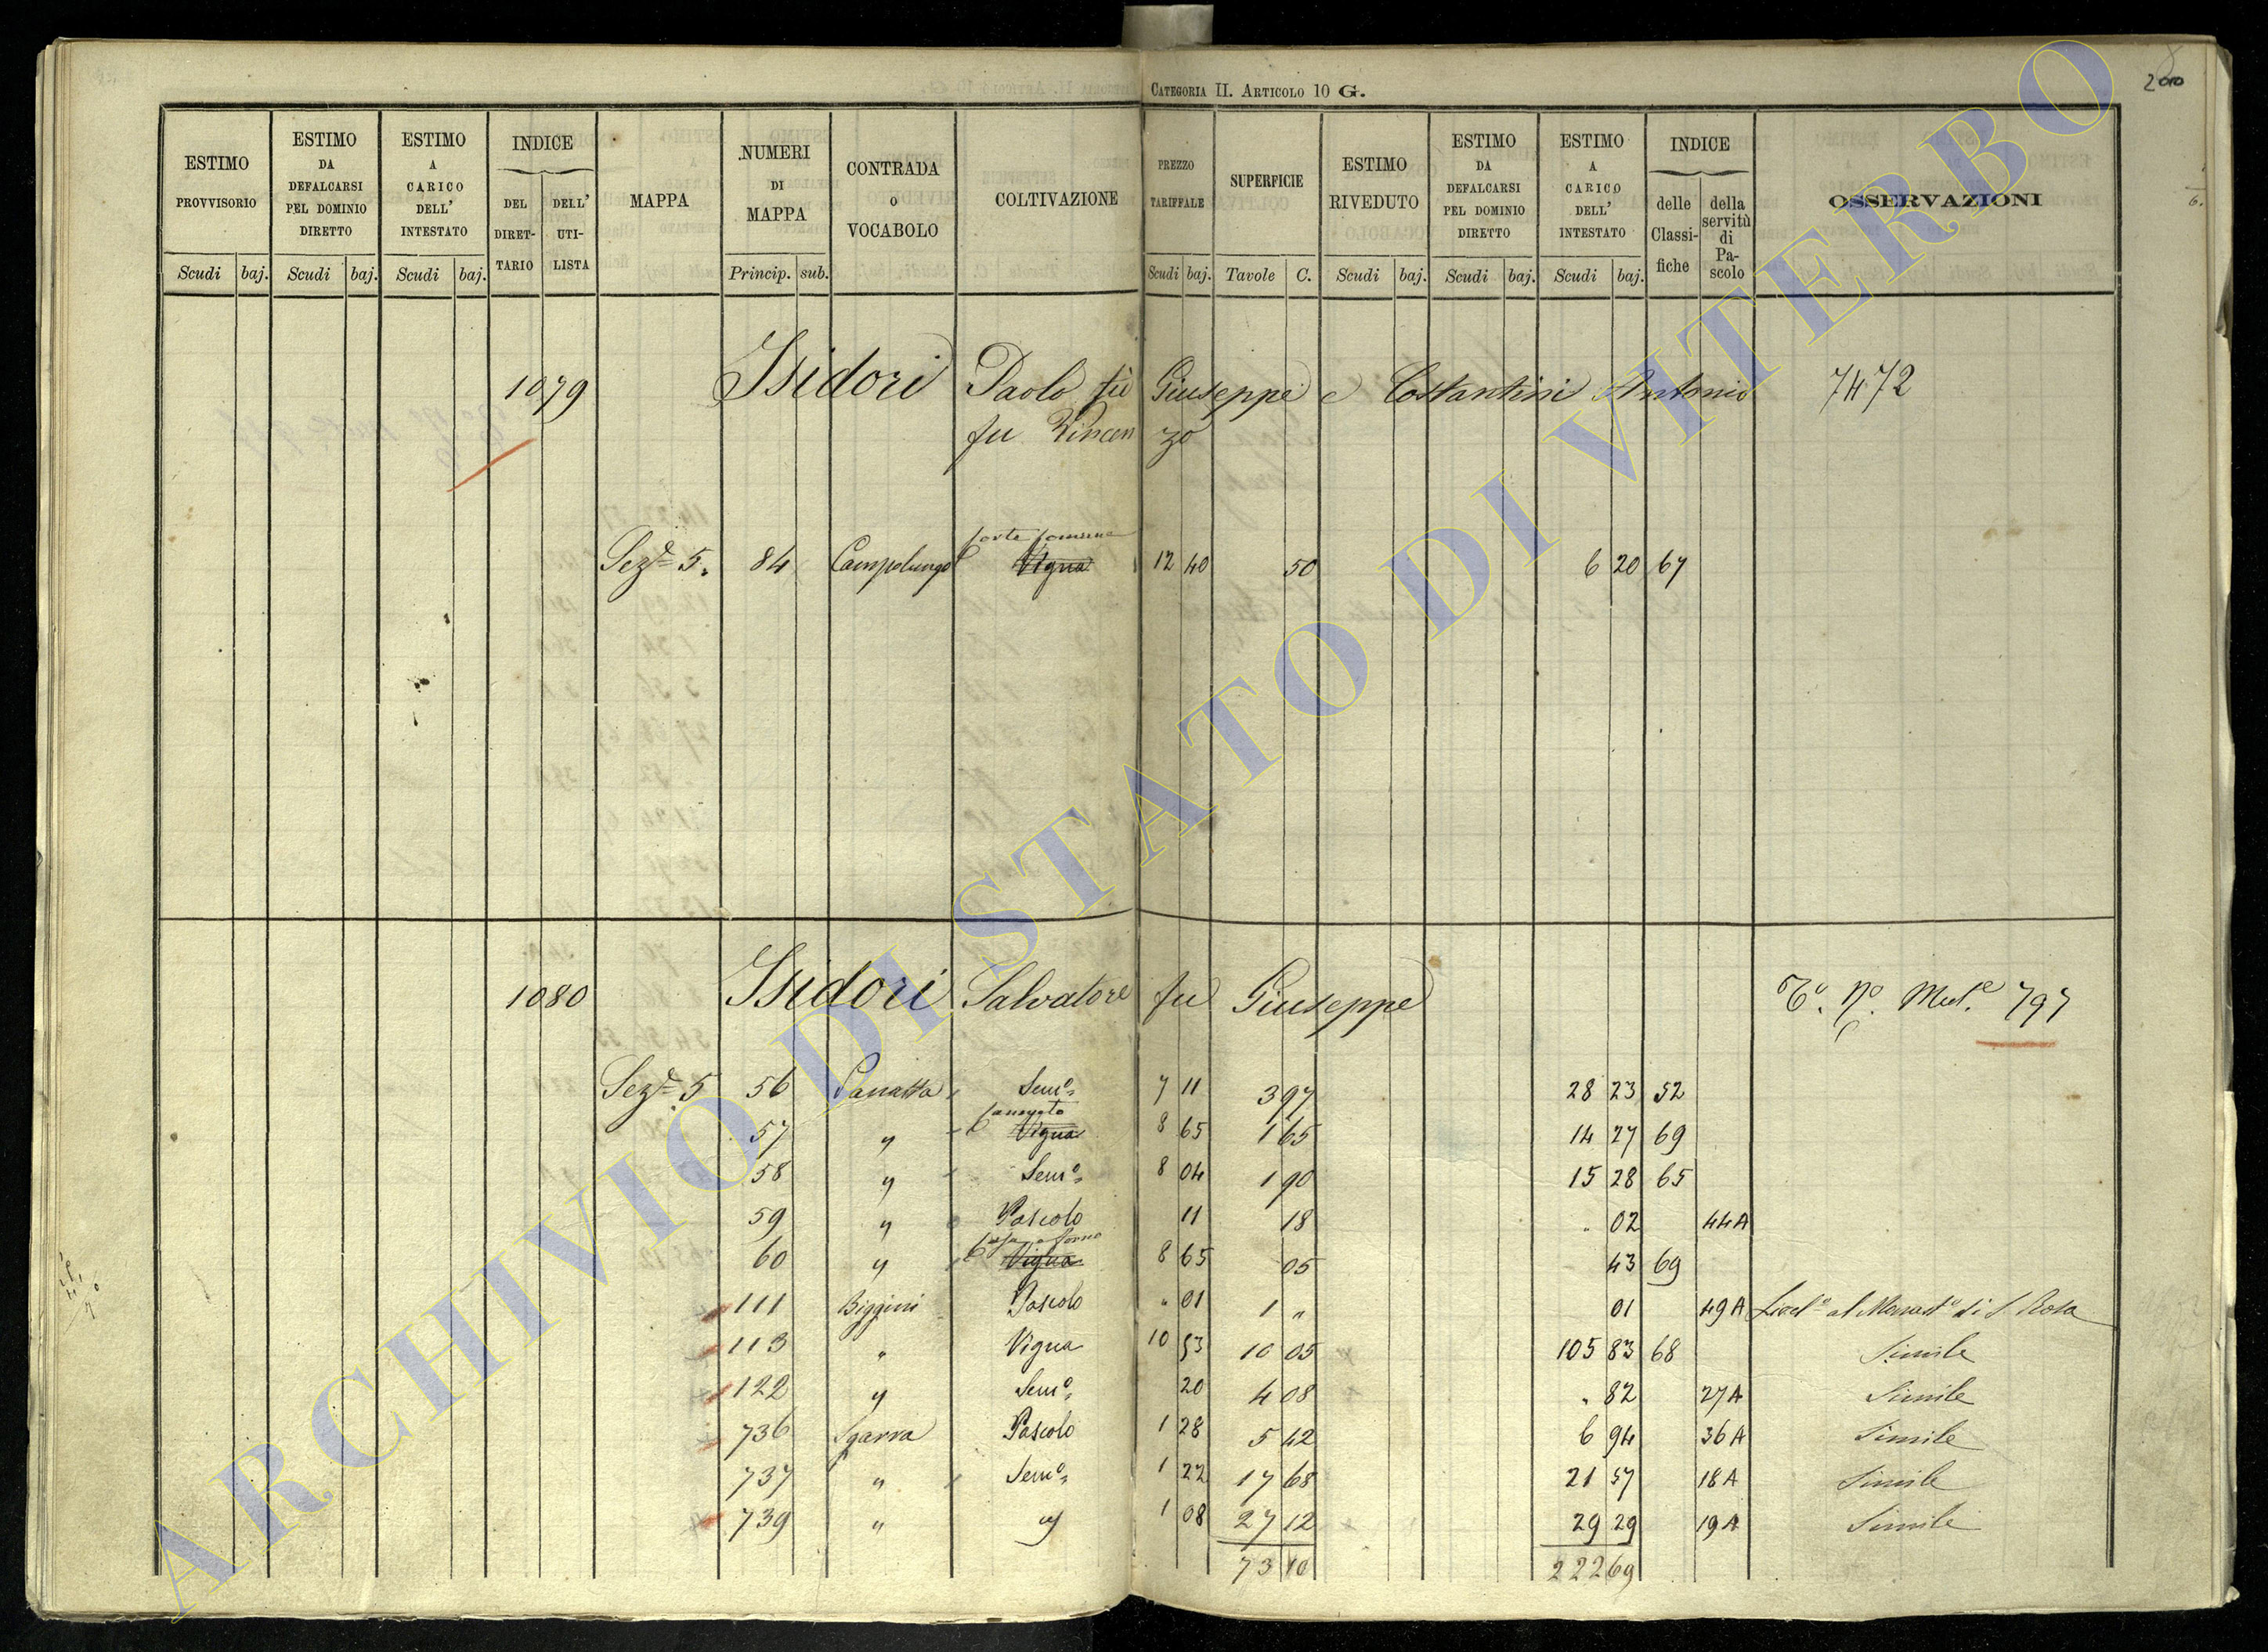 CATEGORIA II. ARTICOLO 10 G.
200
ESTIMO PROVVISORIO Scudi baj.
ESTIMO DA DEFALCARSI PEL DOMINIO DIRETTO Scudi baj.
ESTIMO A CARICO DELL' INTESTATO Scudi baj.
INDICE DEL DIRET-TARIO DELL' UTI-LISTA
MAPPA
NUMERI DI MAPPA Princip. sub.
CONTRADA O VOCABOLO
COLTIVAZIONE
PREZZO TARIFFALE Scudi baj.
SUPERFICIE Tavole C.
ESTIMO RIVEDUTO Scudi baj.
ESTIMO DA DEFALCARSI PEL DOMINIO DIRETTO Scudi baj.
ESTIMO A CARICO DELL' INTESTATO Scudi baj.
INDICE delle Classi-fiche della servitù di Pa-scolo
OSSERVAZIONI
1079 Isidori Paolo fù Giuseppe e Costantini Antonio 7472
fu Vincenzo
Sez.e 5. 84 Campolungo Vigna 12 40 50 6 20 67
1080 Isidori Salvatore fu Giuseppe 797
Sez.e 5 56 Sem.o 7 11 3 97 28 23 52
57 " Vigna 8 65 1 65 14 27 69
58 " Sem.o 8 04 1 90 15 28 65
59 " Pascolo 11 18 " 02 44A
60 " Vigna 8 65 05 43 69
111 Biggini Pascolo " 01 1 " 01 49A Livel.o al Monast.o di S. Rosa
113 " Vigna 10 53 10 05 105 83 68 Simile
122 " Sem.o 20 4 08 " 82 27A Simile
736 Sgarra Pascolo 1 28 5 42 6 94 36A Simile
737 " Sem.o 1 22 17 68 21 57 18A Simile
739 " " 1 08 27 12 29 29 19A Simile
73 10 222 69
ARCHIVIO DI STATO DI VITERBO